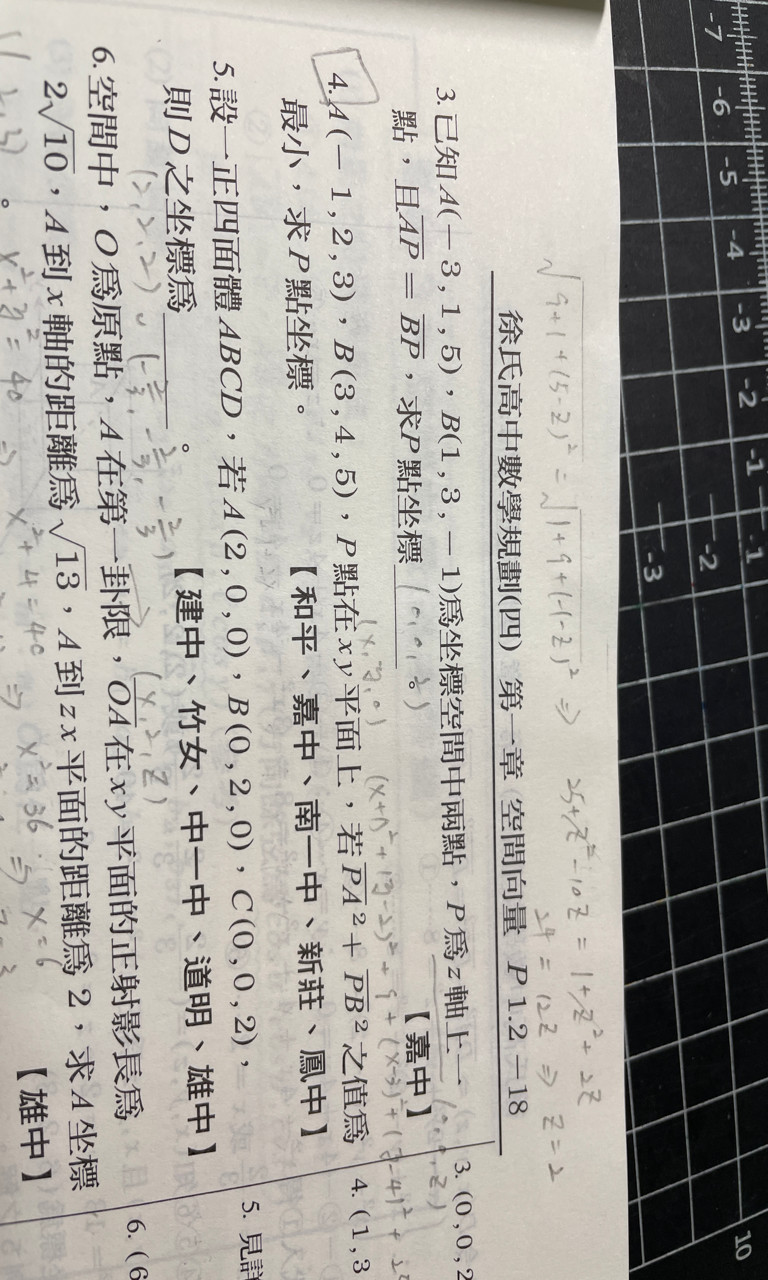 √9+1+(5-z)² = √1+9+(-1-z)² ⇒ 25+z²-10z = 1+z²+2z
24 = 12z ⇒ z = 2
徐氏高中數學規劃(四) 第一章 空間向量 P 1.2 -18
3.已知A(-3,1,5),B(1,3,-1)爲坐標空間中兩點,P爲z軸上一
點,且AP=BP,求P點坐標 (0,0,2)。【嘉中】
(0,0,z)
3. (0,0,2
(x,y,0) (x+1)²+(y-2)²+9+(x-3)²+(y-4)²+
4.A(-1,2,3),B(3,4,5),P點在xy平面上,若PA²+PB²之值爲
最小,求P點坐標。【和平、嘉中、南一中、新莊、鳳中】
4. (1,3
5.設一正四面體ABCD,若A(2,0,0),B(0,2,0),C(0,0,2),
則D之坐標爲 。【建中、竹女、中一中、道明、雄中】
5. 見詳
(2,2,2) ∪ (-2/3,-2/3,-2/3) (x,2,z)
6.空間中,O爲原點,A在第一卦限,OA在xy平面的正射影長爲
2√10,A到x軸的距離爲√13,A到zx平面的距離爲2,求A坐標
。【雄中】
6. (6
x²+y²=40 ⇒ x²+4=40 ⇒ x²=36 ⇒ x=6
-7 -6 -5 -4 -3 -2 -1
-1 -2 -3
10